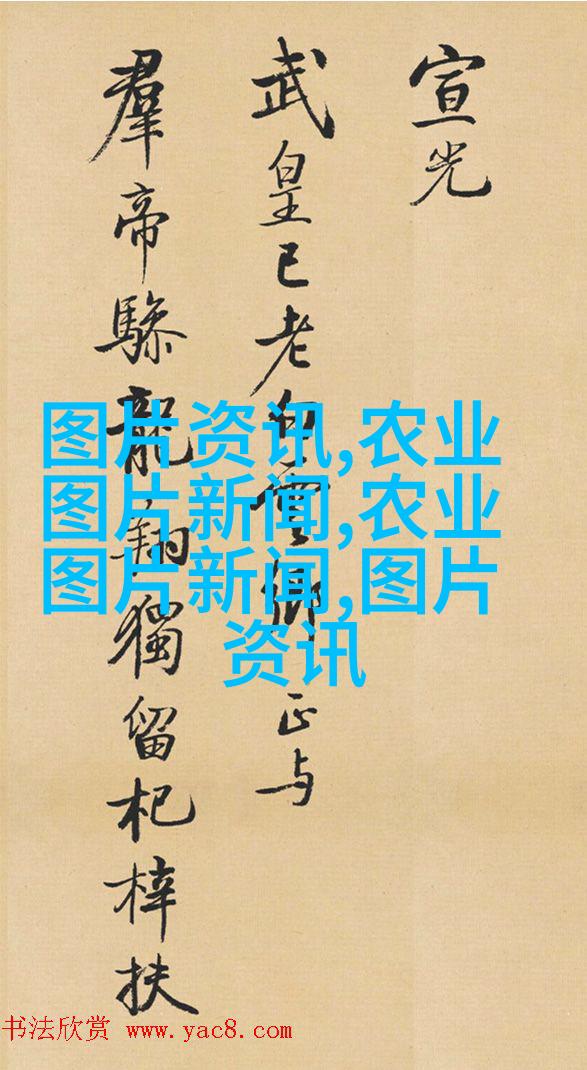 宣光
武皇已老白雲鄉正与
羣帝驂龍翔獨留杞梓扶
图片资讯,农业
图片新闻,农业
图片新闻,图片
资讯
书法欣赏 www.yac8.com